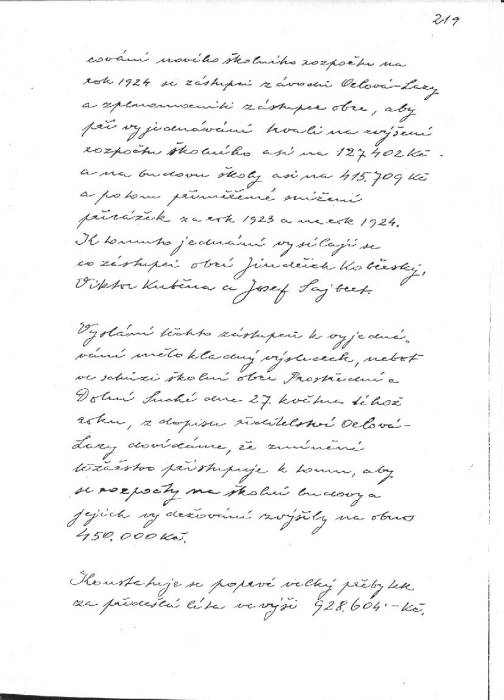 219
cování nového školního rozpočtu na
rok 1924 se zástupci závodů Orlová-Lazy
a zplnomocnili zástupce obce, aby
při vyjednávání trvali na zvýšení
rozpočtu školního asi na 127.402 Kč
a na budovu školy asi na 415.709 Kč
a potom přiměřené snížení
přirážek za rok 1923 a na rok 1924.
K tomuto jednání vysílají se
co zástupci obcí Jindřich Kobierský,
Viktor Kuběna a Josef Sajbert.
Vyslání těchto zástupců k vyjedná-
vání mělo kladný výsledek, neboť
ve schůzi školní obce Prostřední a
Dolní Suché dne 27. května téhož
roku, z dopisu ředitelství Orlová-
Lazy dovídáme, že zmíněné
těžařstvo přistupuje k tomu, aby
se rozpočty na školní budovy a
jejich vydržování zvýšily na obnos
450.000 Kč.
Konstatuje se poprvé velký přebytek
za předešlá léta ve výši 928.604.- Kč.